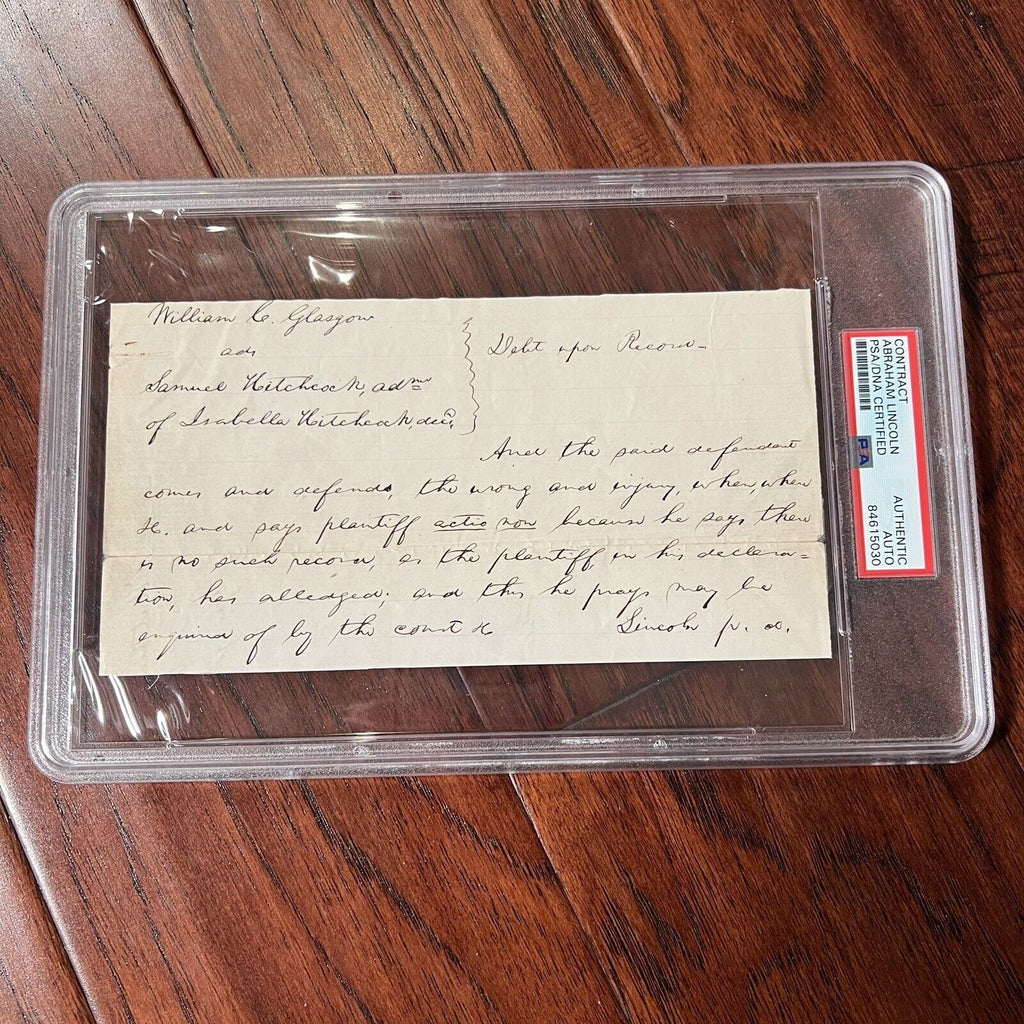 William C. Glasgow
ads
Samuel Hitchcock, admr
of Isabella Hitchcock, decd.
Debt upon Record-
And the said defendant
comes and defends, the wrong and injury, when, where
&c. and says plaintiff actio non because he says there
is no such record, as the plaintiff, in his declara-
tion, has alledged; and this he prays may be
enquired of by the court &c
Lincoln p. d.
CONTRACT
ABRAHAM LINCOLN
PSA/DNA CERTIFIED
PSA
AUTHENTIC
AUTO
84615030